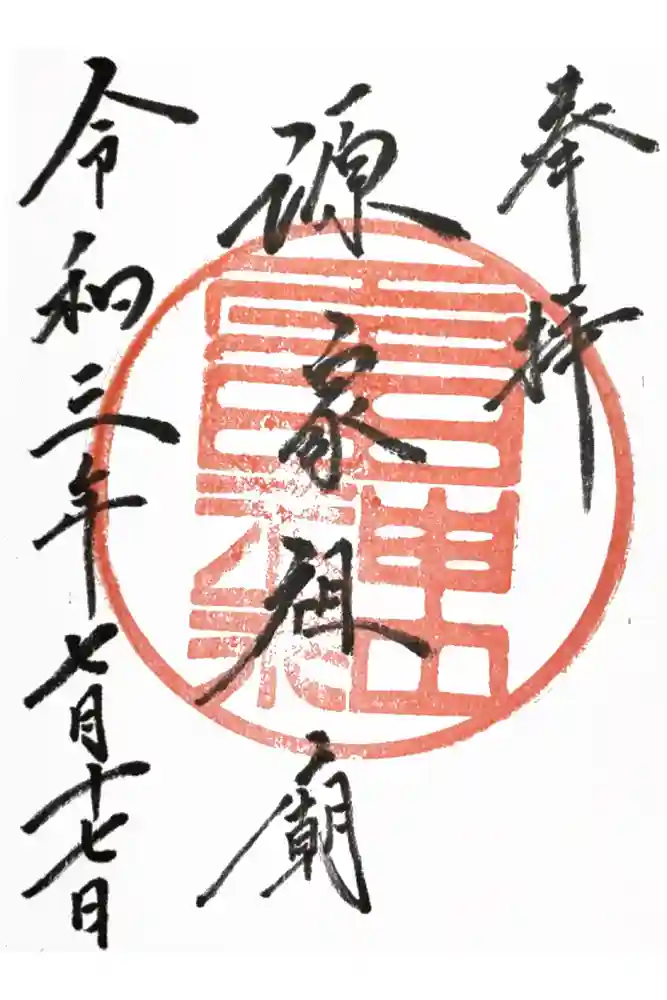 奉拝
源家祖廟
令和三年七月十七日